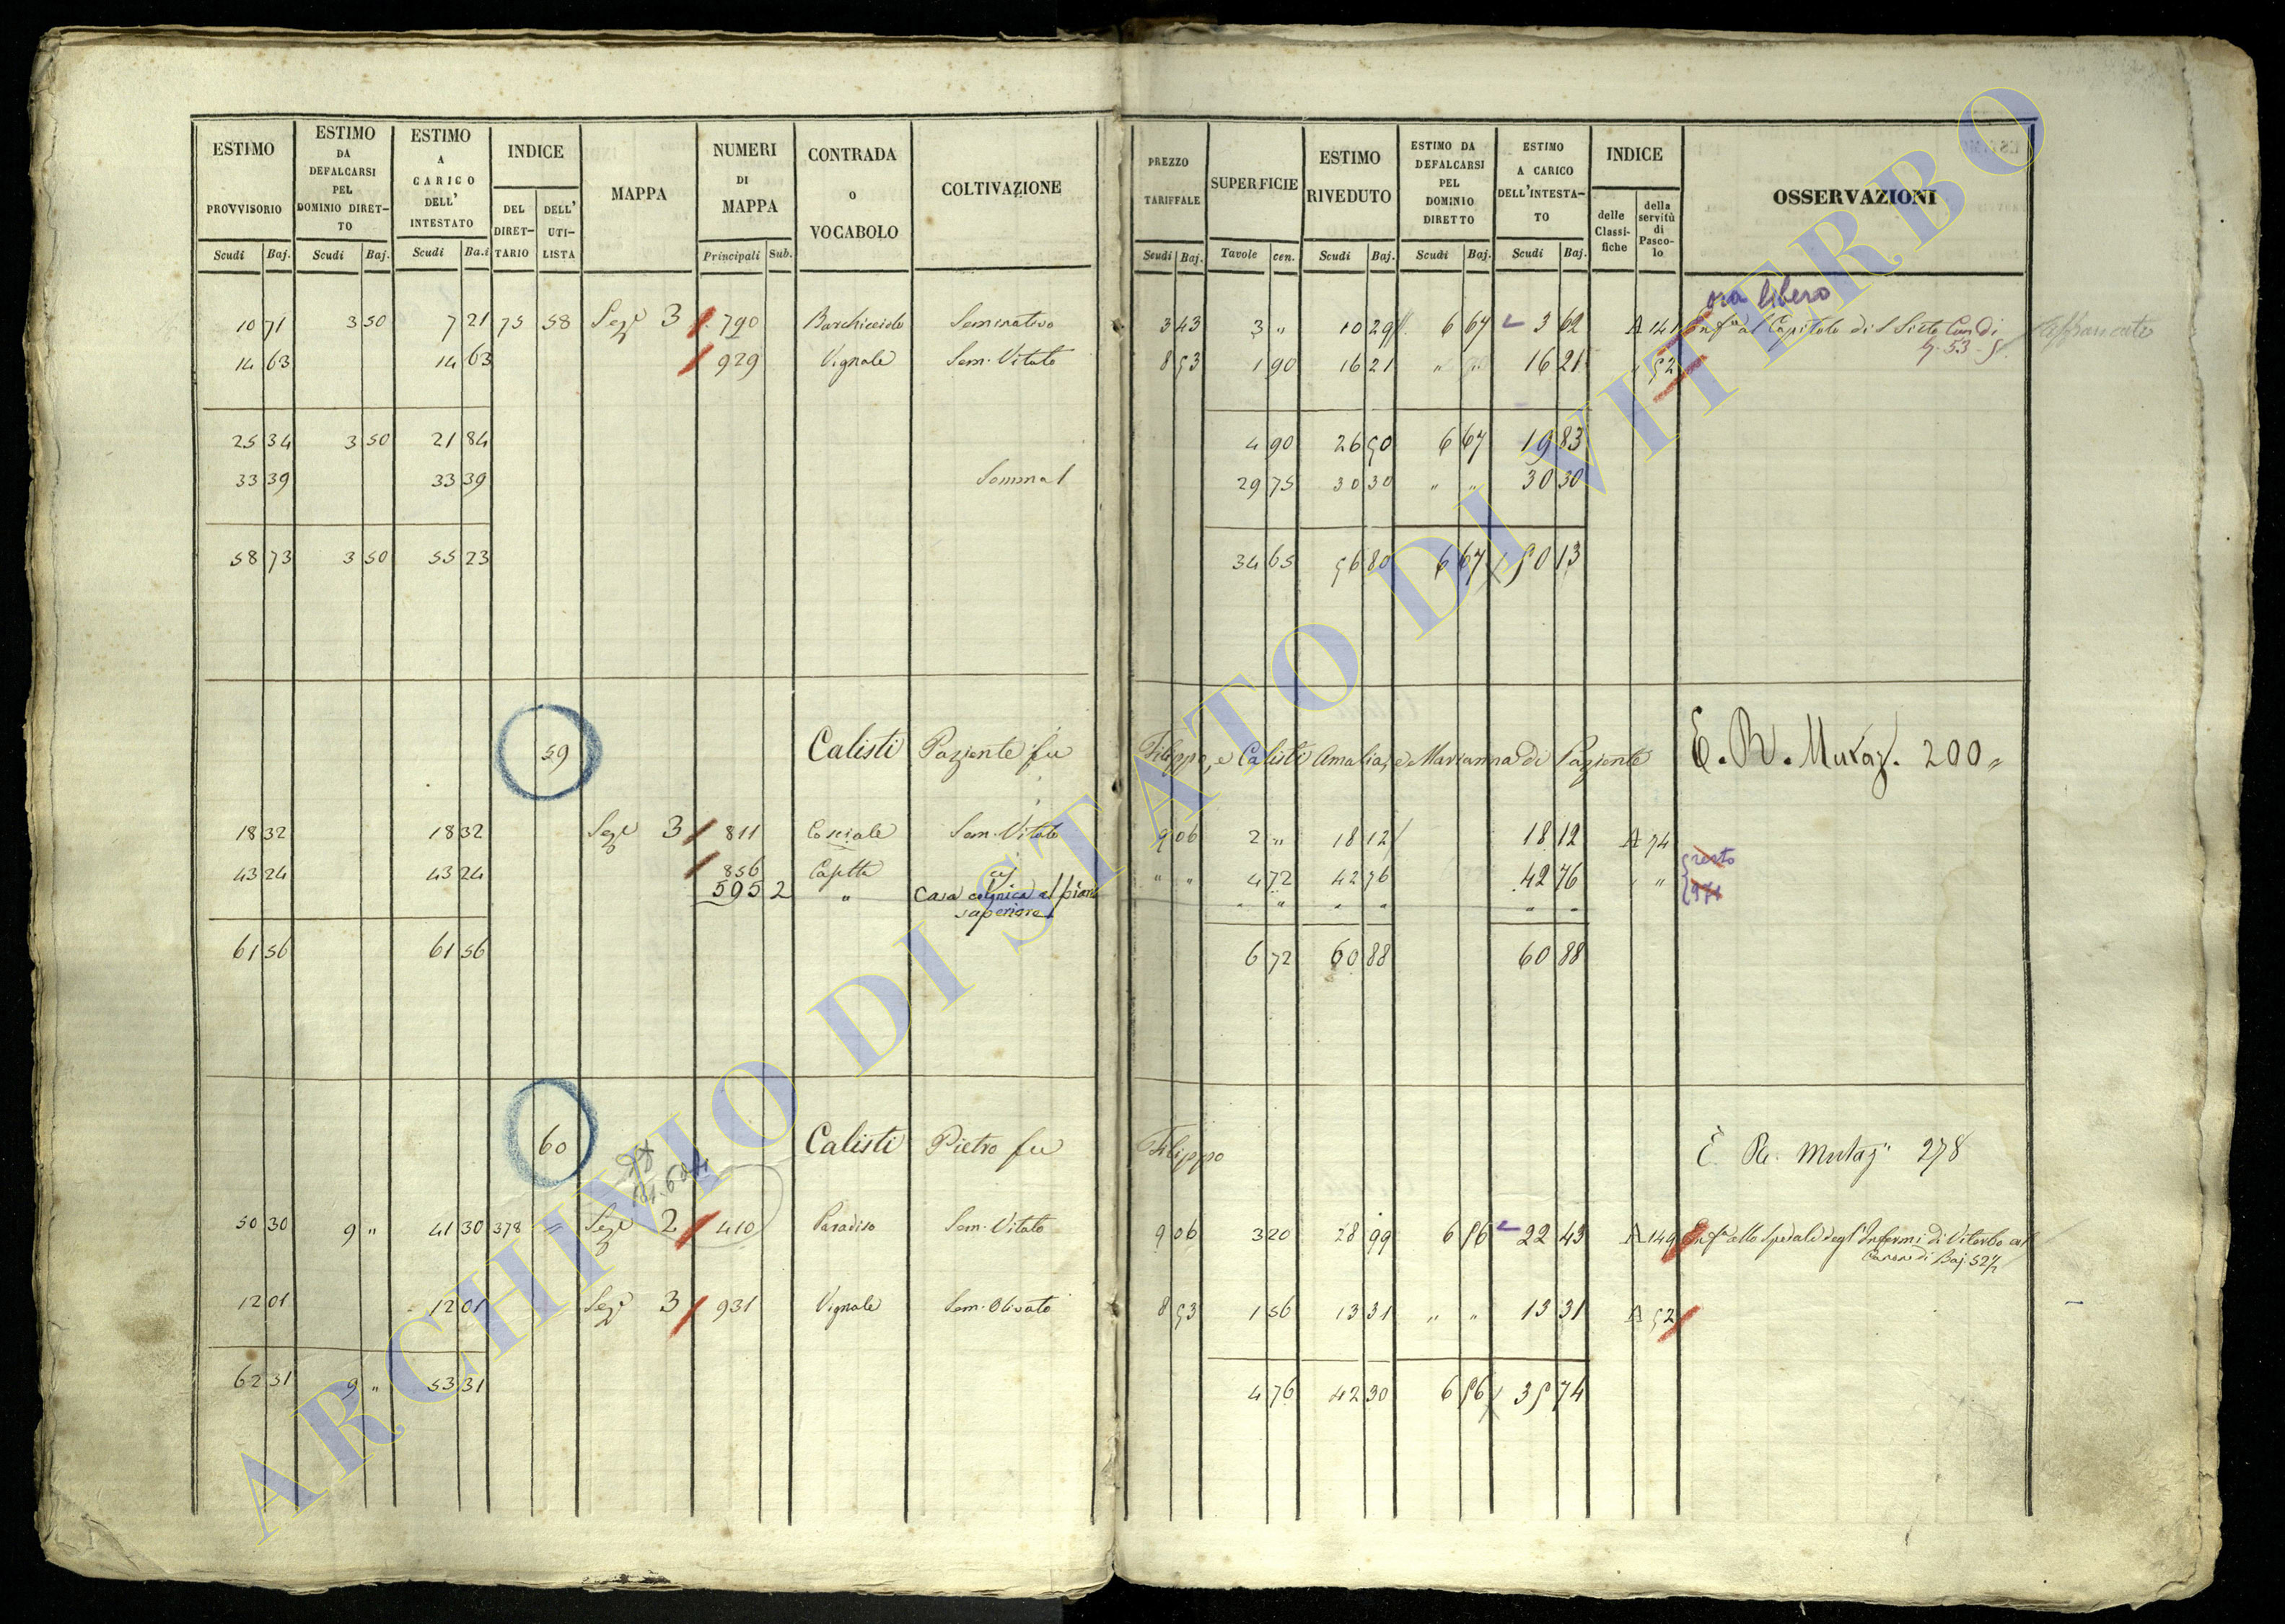 ESTIMO PROVVISORIO Scudi Baj.
ESTIMO DA DEFALCARSI PEL DOMINIO DIRET-TO Scudi Baj.
ESTIMO A CARICO DELL' INTESTATO Scudi Ba.i
INDICE DEL DIRET-TARIO DELL' UTI-LISTA
MAPPA
NUMERI DI MAPPA Principali Sub.
CONTRADA o VOCABOLO
COLTIVAZIONE
PREZZO TARIFFALE Scudi Baj.
SUPERFICIE Tavole cen.
ESTIMO RIVEDUTO Scudi Baj.
ESTIMO DA DEFALCARSI PEL DOMINIO DIRETTO Scudi Baj.
ESTIMO A CARICO DELL'INTESTA-TO Scudi Baj.
INDICE delle Classi-fiche della servitù di Pasco-lo
OSSERVAZIONI
ora libero
10 71 3 50 7 21 75 58 Sezе 3 790 Seminativo 3 43 3 " 10 29 6 67 3 62 A 141 al Capitolo di S Sisto
14 63 14 63 929 Vignale Sem. Vitato 8 53 1 90 16 21 " " 16 21 " 52
25 34 3 50 21 84 4 90 26 50 6 67 19 83
33 39 33 39 Somma 29 75 30 30 " " 30 30
58 73 3 50 55 23 34 65 56 80 6 67 50 13
59 Calisti Paziente fu Filippo, e Calisti Amalia, e Marianna di Paziente E. R. Mutaz. 200 "
18 32 18 32 Sezе 3 811 Sem. Vitato 9 06 2 " 18 12 18 12 A 74
43 24 43 24 856 " " 4 72 42 76 42 76 " " resto
5952 " Casa colonica al piano
superiore
61 56 61 56 6 72 60 88 60 88
60 Calisti Pietro fu Filippo E. R. Mutaz" 278
50 30 9 " 41 30 378 = Sezе 2 410 Paradiso Sem. Vitato 9 06 3 20 28 99 6 56 22 43 A 144 Enfa allo Spedale degl'Infermi di Viterbo
Canone di Baj. 52½
12 01 12 01 Sezе 3 931 Vignale Sem. Olivato 8 53 1 56 13 31 " " 13 31 A 52
62 31 9 " 53 31 4 76 42 30 6 56 35 74
ARCHIVIO DI STATO DI VITERBO